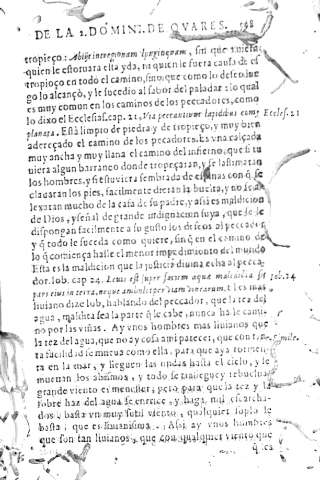 DE LA 2. DOMIN. DE QVARES.
tropieço: Abijt in regionem longinquam, sin que
quien le estoruara esta yda, ni quien le fuera causa de es
tropieço en todo el camino, sino que como lo desseo lue
go lo alcançò, y le sucedio al sabor del paladar: lo qual
es muy comun en los caminos de los peccadores, como
lo dixo el Ecclesias. cap. 21, Via peccantium lapidibus comp Eccles. 21
planata. Està limpio de piedra y de tropieço, y muy bien
adereçado el camino de los peccadores. Es vna calçada
muy ancha y muy llana el camino del infierno, que si tu
uiera algun barranco donde tropeçaran, y se lastimaran
los hombres, y si estuuiera sembrada de espinas con q̃ se
clauaran los pies, facilmente dieran la buelta, y no se ale
xaran mucho de la casa de su padre, y assi es maldicion
de Dios, y señal de grande indignacion suya, que se le
dispongan facilmente a su gusto los desseos al peccador,
y q̃ todo le suceda como quiere, sin q̃ en el camino de
lo q̃ comiença halle el menor impedimento del mundo
Esta es la maldicion que la justicia diuina echa al pecca-
dor. Iob. cap 24. Leuis est super faciem aquæ maledicta sit Iob. 24
pars eius in terra, neque ambulet per viam vinearum.
liuiano dize Iob, hablando del peccador, que la tez del
agua, maldita sea la parte q̃ le cabe, nunca ha le cami-
no por las viñas. Ay vnos hombres mas liuianos que
la tez del agua, que no ay cosa a mi parecer, que con
ta facilidad se mueua como ella, para que aya tormen
ta en la mar, y lleguen las ondas hasta el cielo, y le
mueuan los abismos, y todo se trasiegue y rebuelua
grande viento es menester; pero para que la tez y la
sobre haz del agua se enrice, y haga mil escarcha-
dos, basta vn muy sutil viento, qualquier soplo le
basta; que es liuianissima. Assi ay vnos hombres
que son tan liuianos, que con qualquier viento que